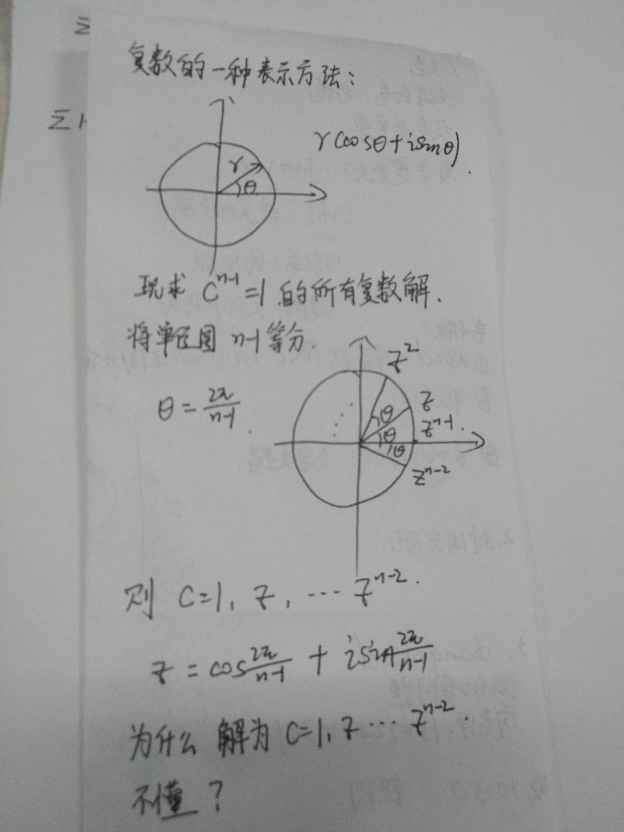 复数的一种表示方法：
r(cosθ+isinθ)
r
θ
现求 C^{n-1}=1 的所有复数解.
将单位圆 n-1等分.
θ = \frac{2π}{n-1}.
z^2
z
z^{n-1}.
z^{n-2}
θ
θ
θ
则 C=1, z, ... z^{n-2}.
z = cos\frac{2π}{n-1} + isin\frac{2π}{n-1}
为什么 解为 C=1, z ... z^{n-2}.
不懂？